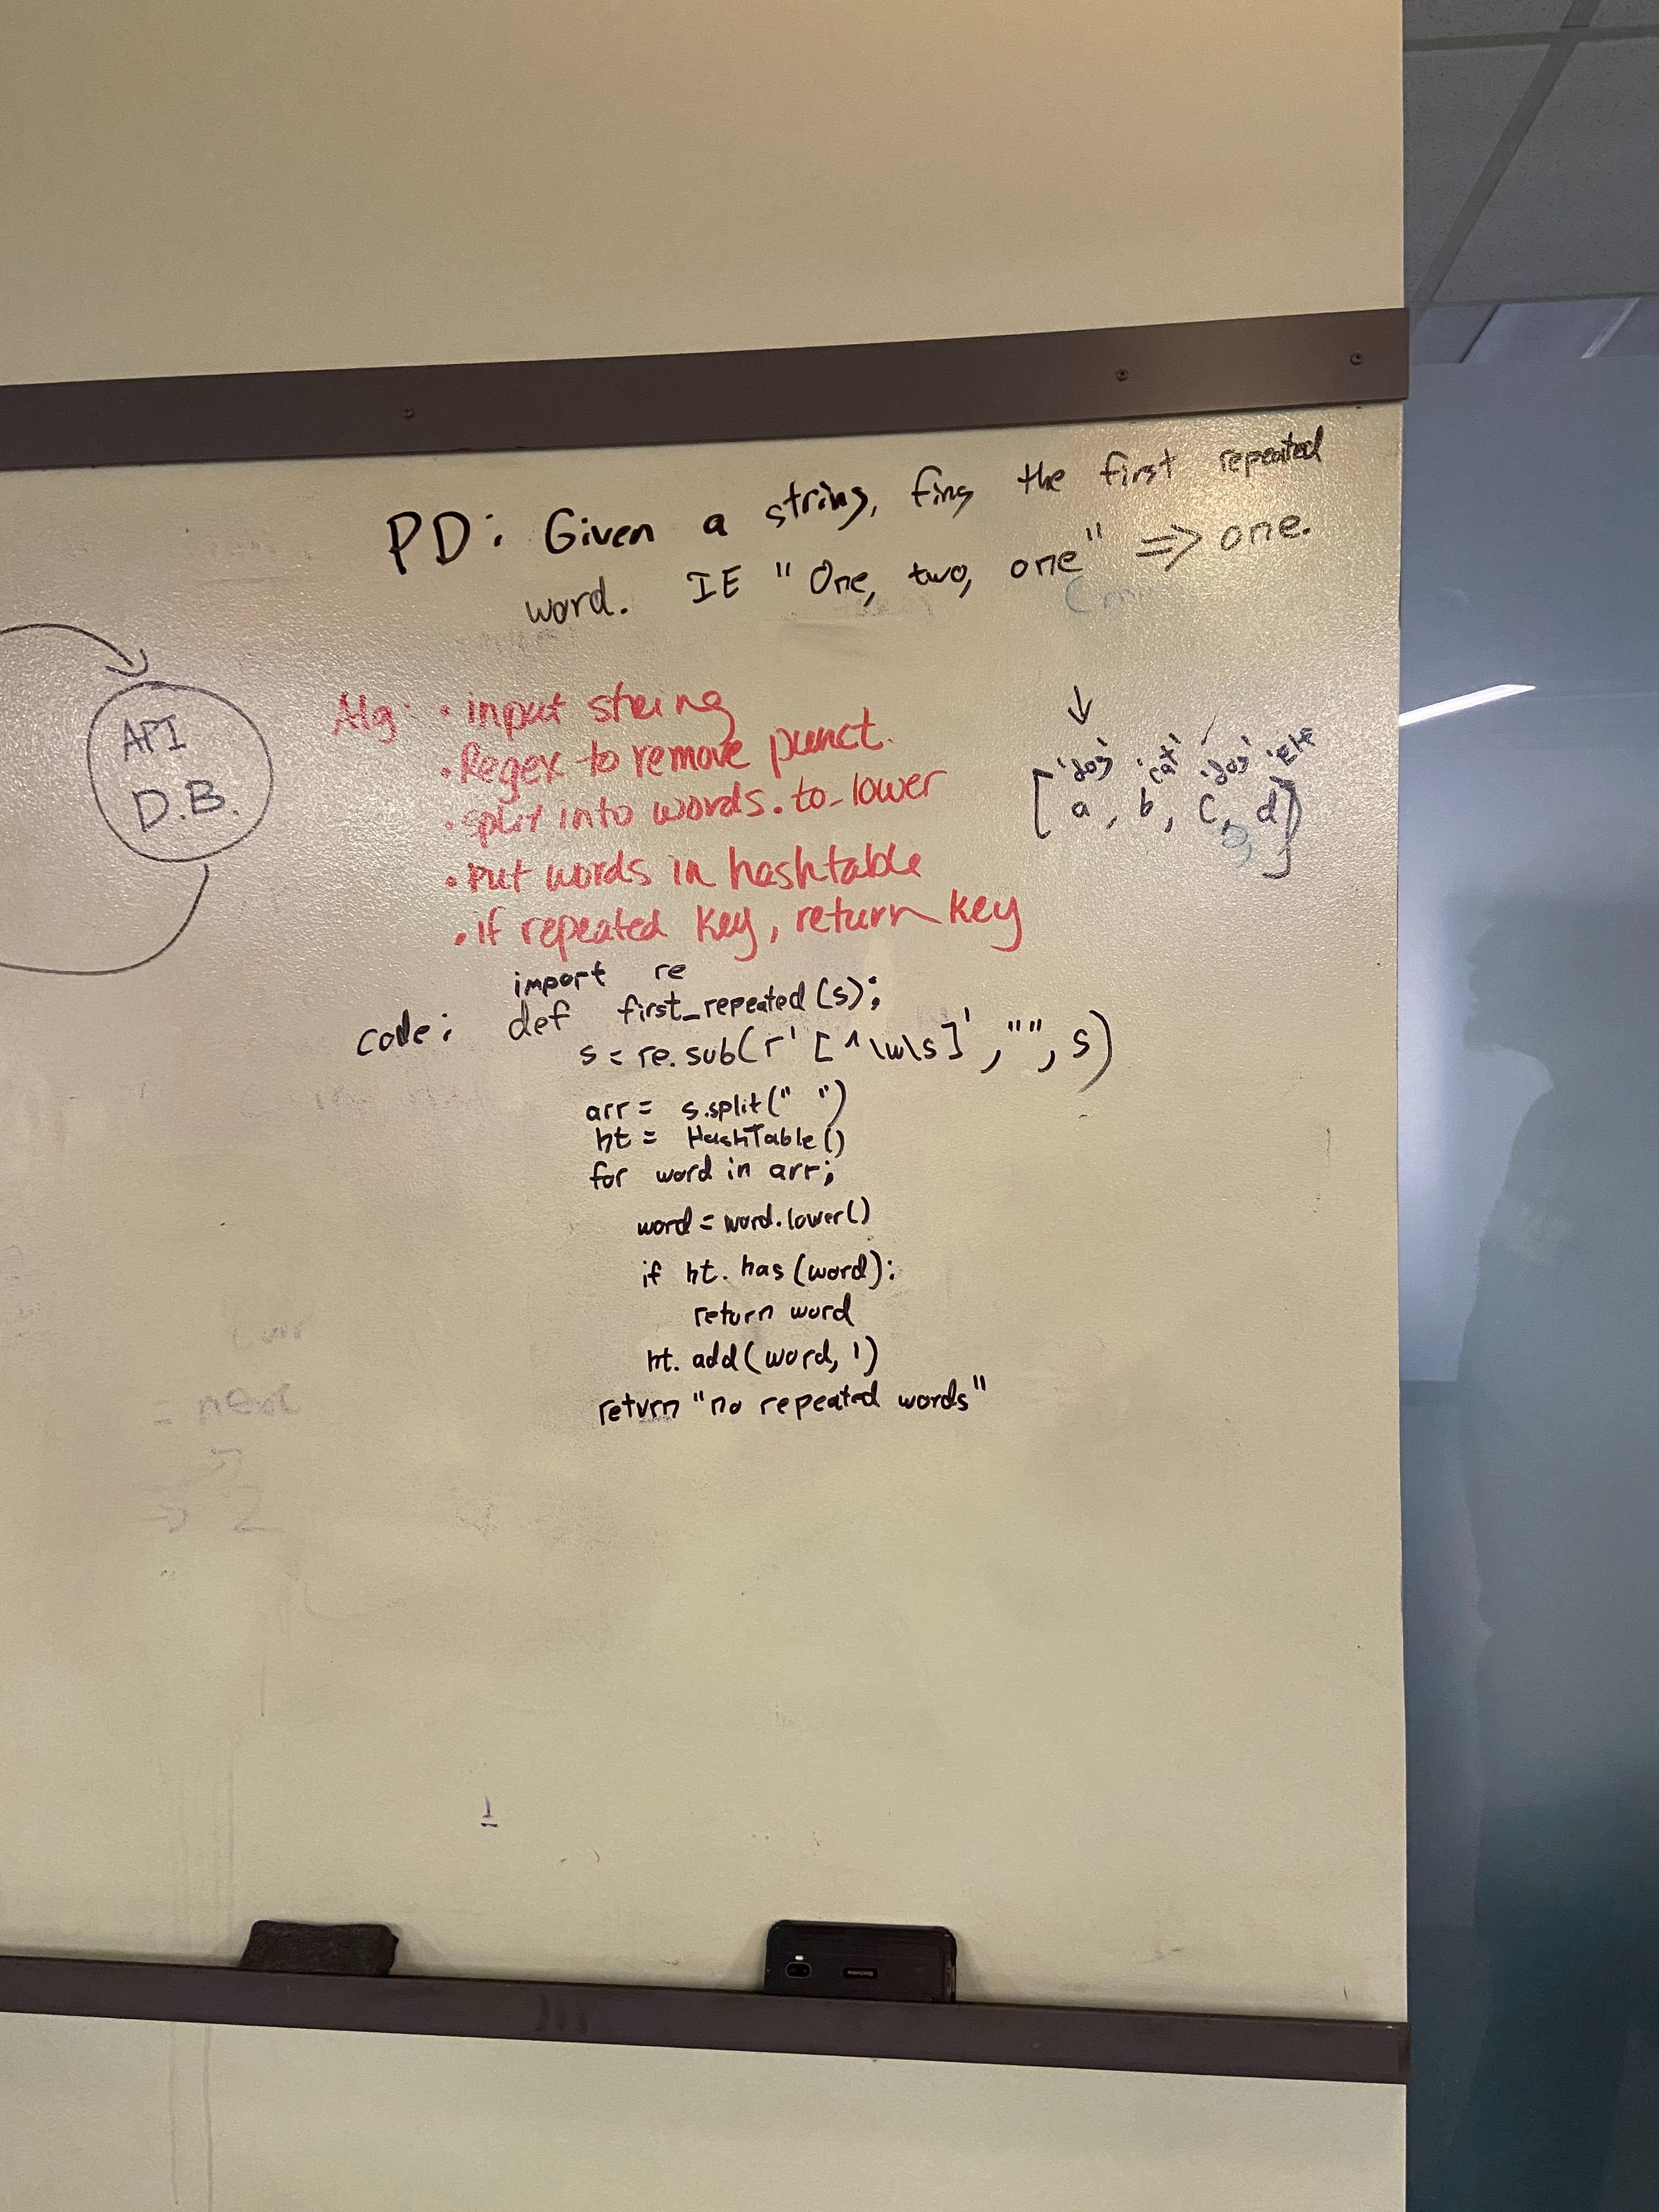 PD: Given a string, fing the first repeated
word. IE "One, two, one" => one.
API
D.B.
Alg: • input string
• Regex to remove punct.
• split into words.to_lower
• put words in hashtable
• if repeated key, return key
'dog' 'cat' 'dog'
[a, b, c, d]
import re
code: def first_repeated(s):
s = re.sub(r'[^\w\s]', "", s)
arr = s.split(" ")
ht = HashTable()
for word in arr:
word = word.lower()
if ht. has (word):
return word
ht. add(word, 1)
return "no repeated words"
= next
2
1